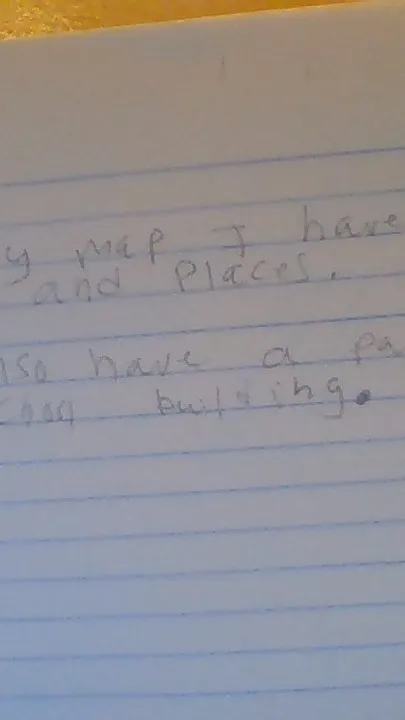 y map I have
and Places.
lso have a pa
building.